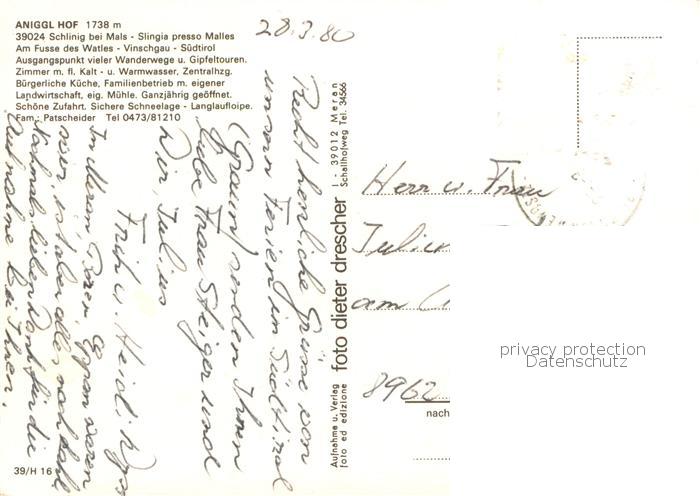 ANIGGL HOF 1738 m
39024 Schlinig bei Mals - Slingia presso Malles
Am Fusse des Watles - Vinschgau - Südtirol
Ausgangspunkt vieler Wanderwege u. Gipfeltouren.
Zimmer m. fl. Kalt - u. Warmwasser, Zentralhzg.
Bürgerliche Küche, Familienbetrieb m. eigener
Landwirtschaft, eig. Mühle. Ganzjährig geöffnet.
Schöne Zufahrt. Sichere Schneelage - Langlaufloipe.
Fam.: Patscheider Tel 0473/81210
28.3.80
Recht herzliche Grüsse von
unsern Ferien im Südtirol
(Graun) senden Ihnen
liebe Frau Steiger und
Dir, Julius
Fritz u. Heidi
In Meran, Bozen, waren
wir, ist aber alles noch kahl
Nochmals lieben Dank für die
Aufnahme bei Ihnen.
39/H 16
Aufnahme u. Verlag
foto ed edizione
foto dieter drescher
I - 39012 Meran
Schallhofweg Tel. 34566
Herr u. Frau
am
8962
nach
privacy protection
Datenschutz